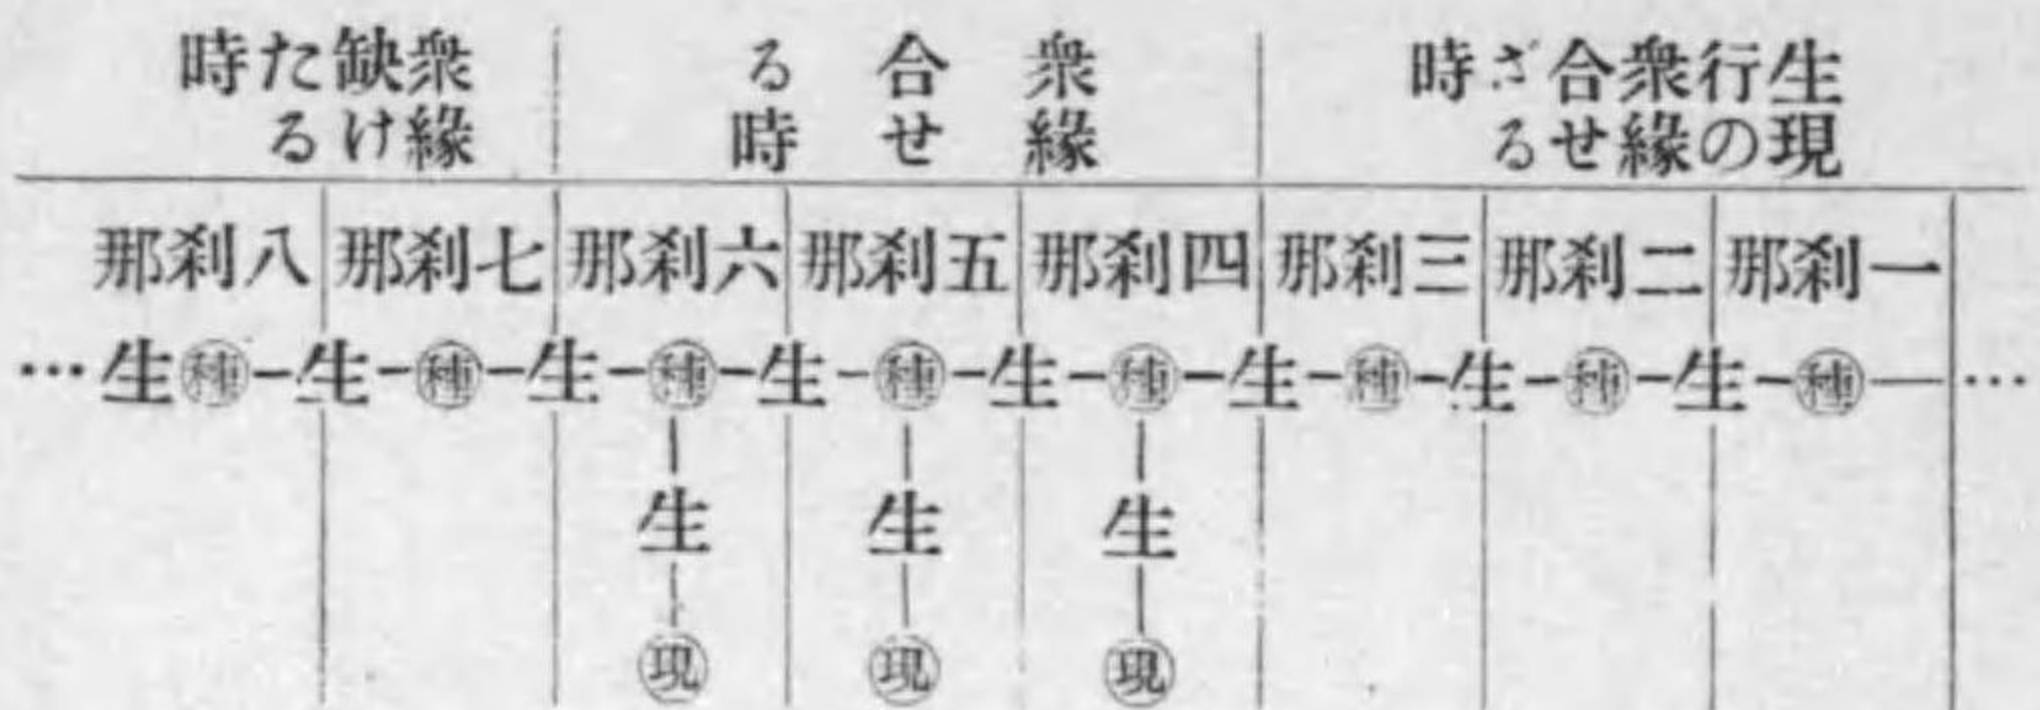 生現行の衆緣合せざる時
衆緣合せる時
衆緣缺けたる時
一刹那
二刹那
三刹那
四刹那
五刹那
六刹那
七刹那
八刹那
…種生種生種生種生種生種生種生種生…
生 生 生
現 現 現